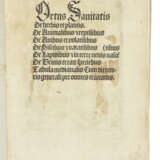 Ortus Sanitatis
De herbis et plantis
De Animalibus et reptilibus
De Auibus et volatilibus
De Piscibus et natatilibus
De Lapidibus et in terre venis nascẽ
De Urinis et earum speciebus
Tabula medicinalis Cum directorio
generali per omnes tractatus.